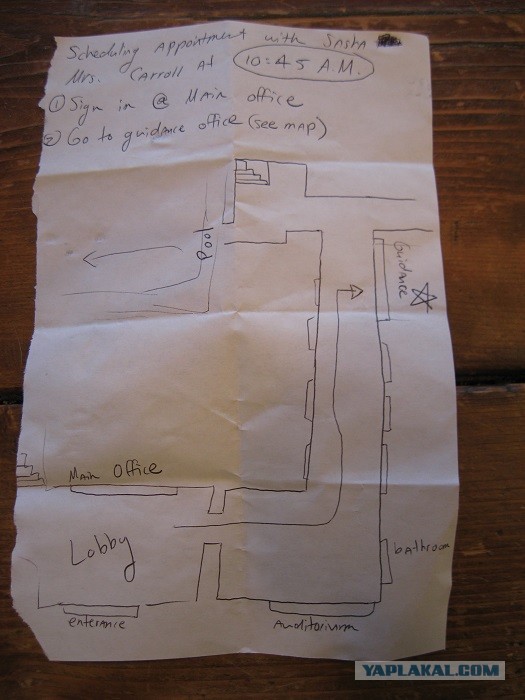 Scheduling Appointment with Sasha
Mrs. Carroll At 10:45 A.M.
① Sign in @ Main office
② Go to guidance office (see map)
pool
Guidance
Main Office
Lobby
bathroom
enterance
Auditorium
YAPLAKAL.COM